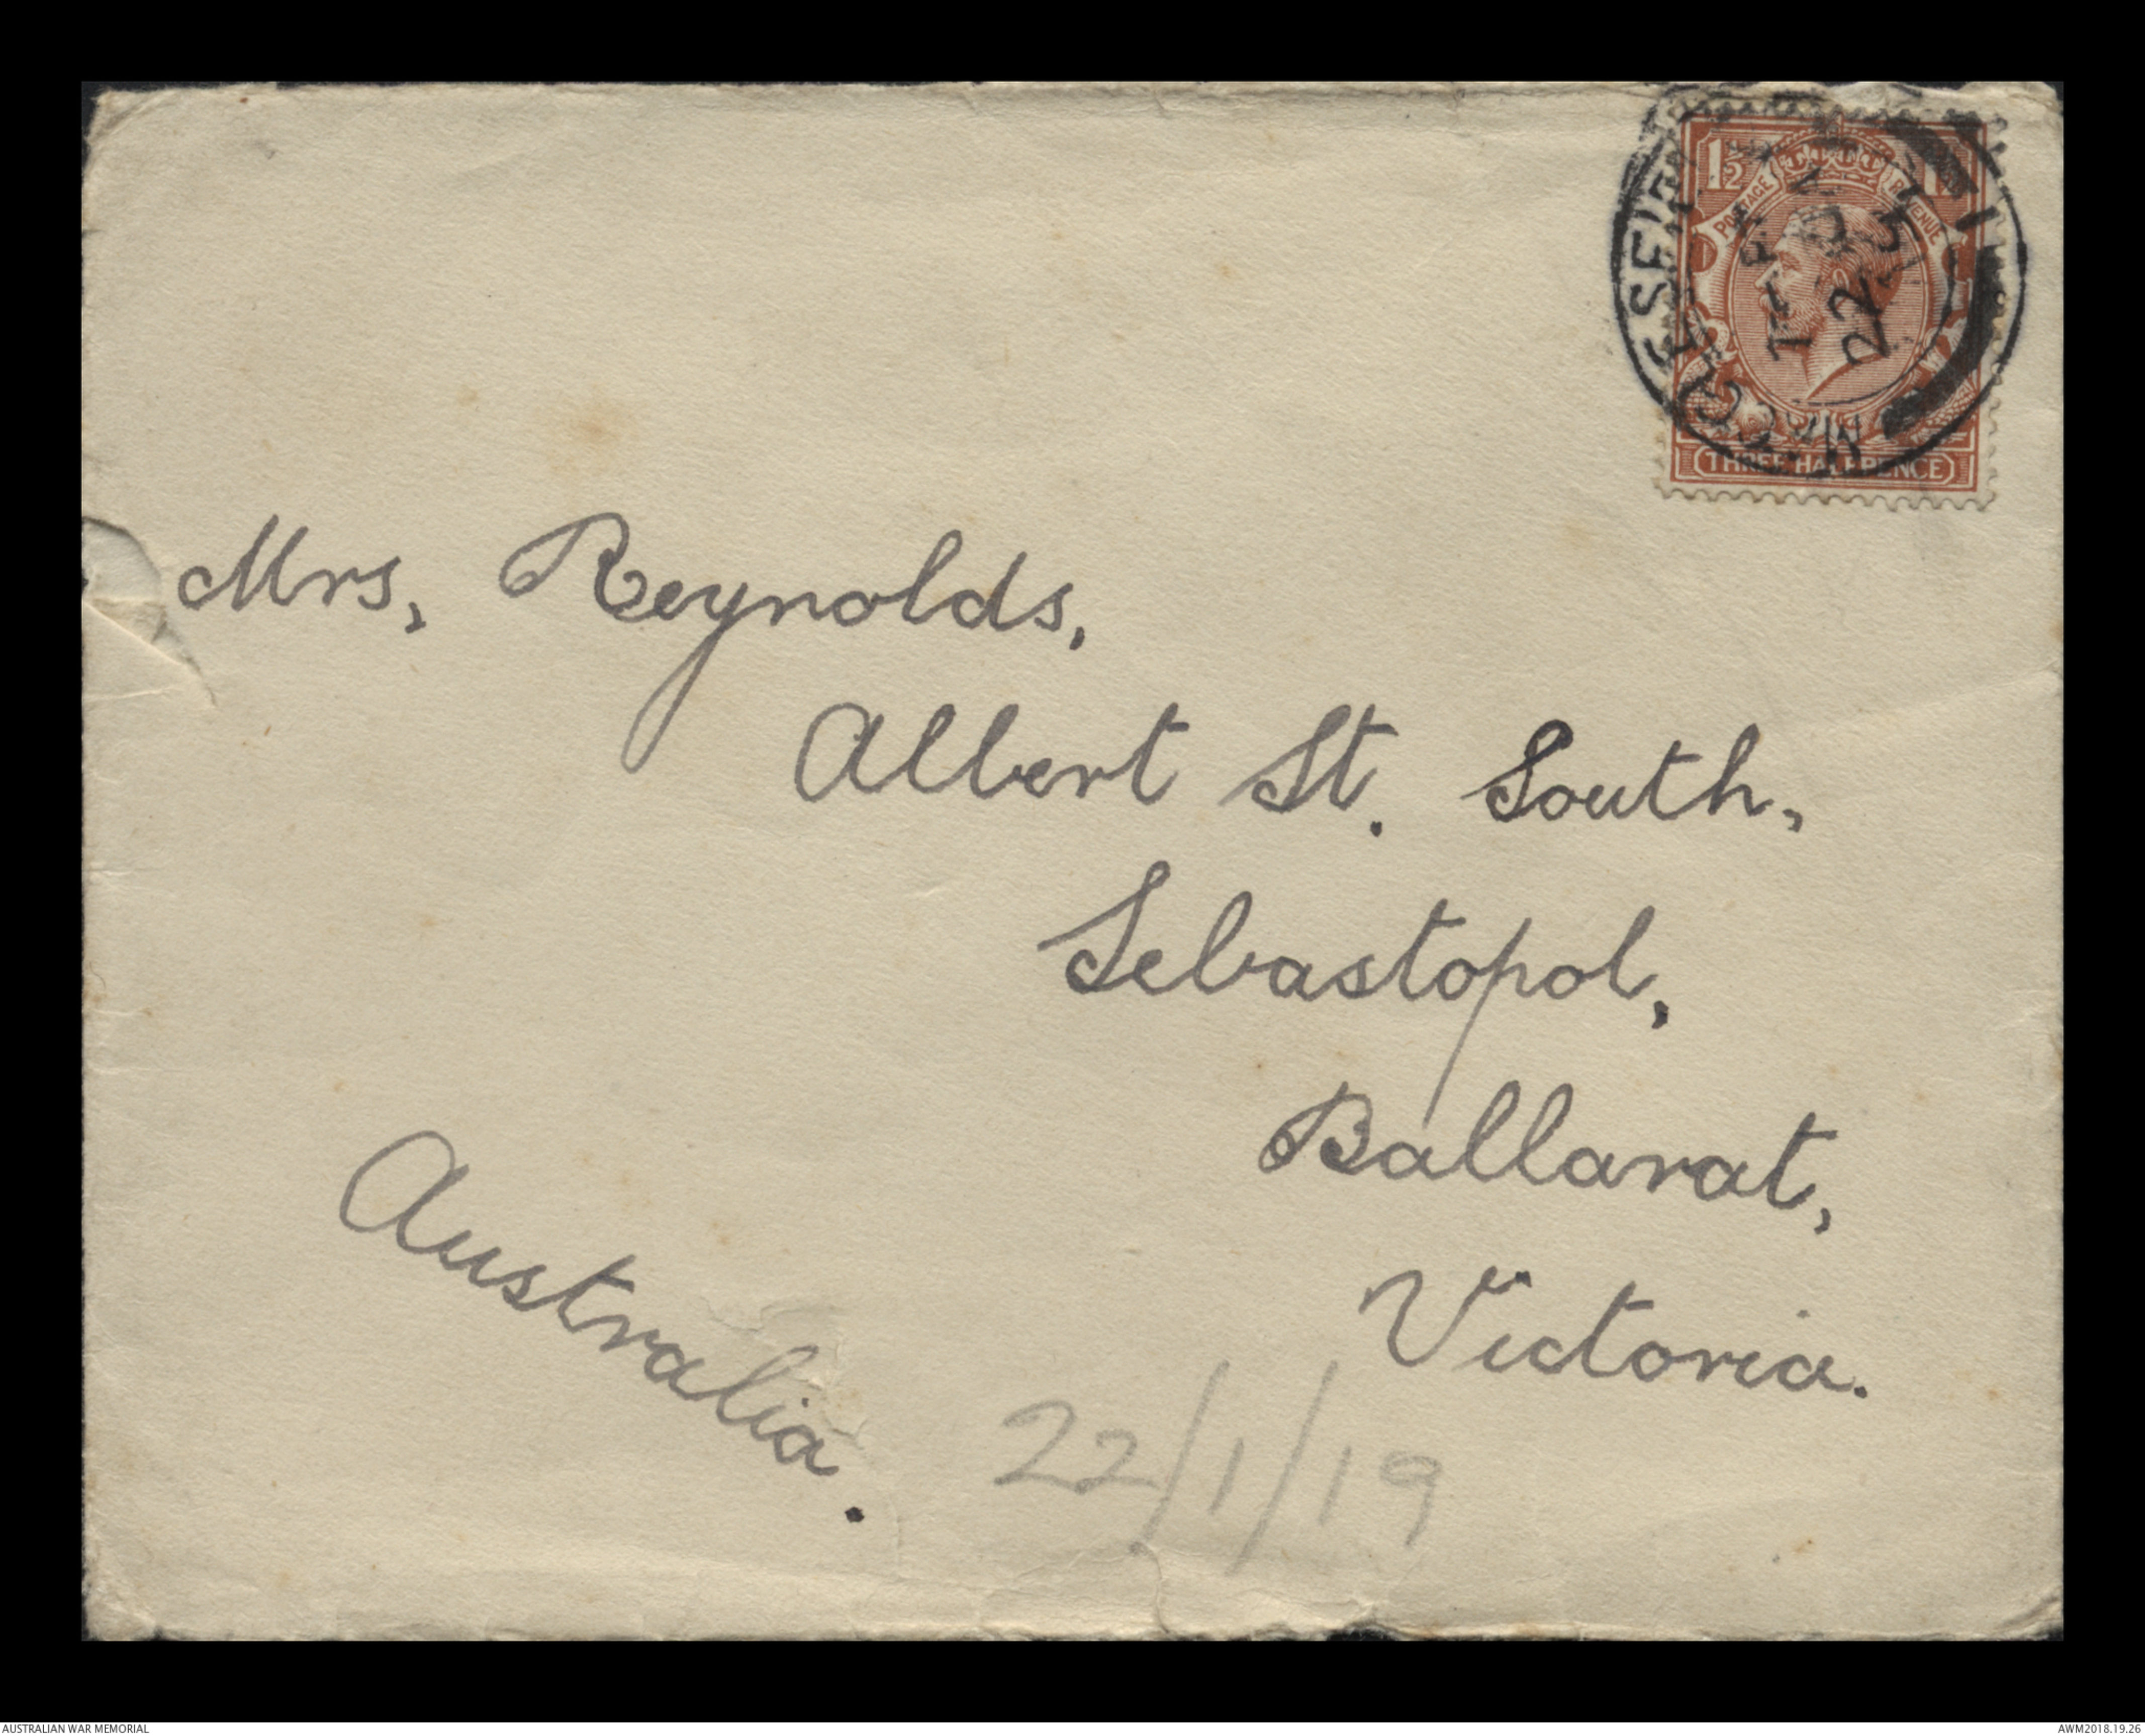 1½
POSTAGE REVENUE
THREE HALFPENCE
MACCLESFIELD
22
Mrs, Reynolds,
Albert St. South,
Sebastopol,
Ballarat,
Victoria.
Australia.
22/1/19
AUSTRALIAN WAR MEMORIAL
AWM2018.19.26